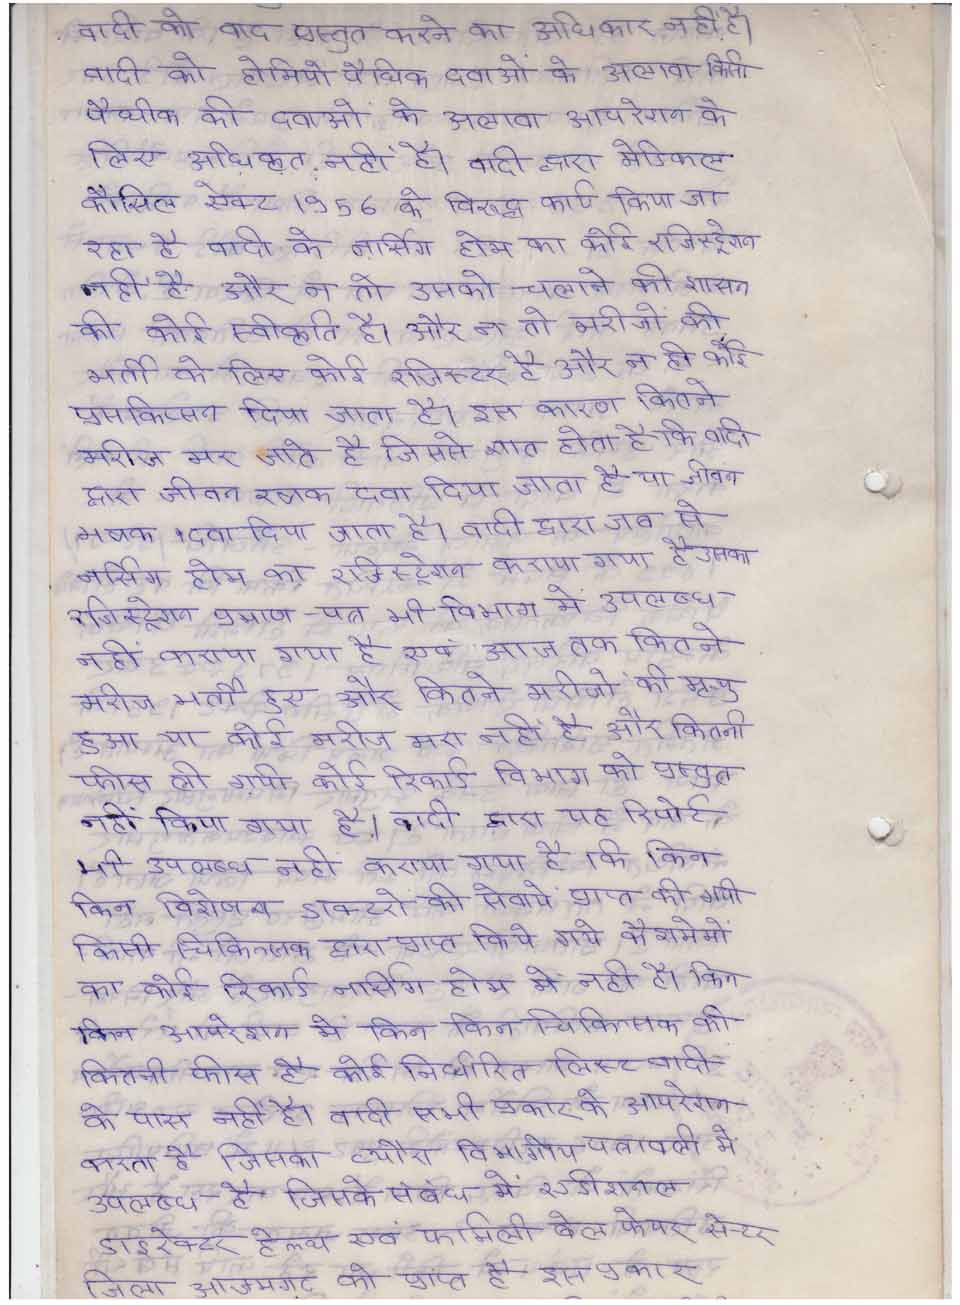 वादी को वाद प्रस्तुत करने का अधिकार नहीं है।
वादी को होमियो पैथिक दवाओं के अलावा किसी
पैथीक की दवाओं के अलावा आपरेशन के
लिए अधिकृत नहीं है। वादी द्वारा मेडिकल
कौसिल ऐक्ट 1956 के विरुद्ध कार्य किया जा
रहा है वादी के नर्सिग होम का कोई रजिस्ट्रेशन
नहीं है और न तो उसको चलाने की शासन
की कोई स्वीकृति है। और न तो मरीजों की
भर्ती के लिए कोई रजिस्टर है और न ही कोई
प्रसकिप्सन दिया जाता है। इस कारण कितने
मरीज मर जाते है जिससे ज्ञात होता है कि वादी
द्वारा जीवन रक्षक दवा दिया जाता है या जीवन
भक्षक दवा दिया जाता है। वादी द्वारा जब से
नर्सिग होम का रजिस्ट्रेशन कराया गया है उसका
रजिस्ट्रेशन प्रमाण पत्र भी विभाग में उपलब्ध
नहीं कराया गया है एवं आज तक कितने
मरीज भर्ती हुए और कितने मरीजो की मृत्यु
हुआ या कोई मरीज मरा नहीं है और कितनी
फीस ली गयी कोई रिकार्ड विभाग को प्रस्तुत
नहीं किया गया है। वादी द्वारा यह रिपोर्ट
भी उपलब्ध नहीं कराया गया है कि किन
किन विशेषज्ञ डाक्टरो की सेवाये प्राप्त की गयी
किसी चिकित्सक द्वारा प्राप्त किये गये कैशमेमों
का कोई रिकार्ड नर्सिग होम मे नहीं है। किन
किन आपरेशन मे किन किन चिकित्सक की
कितनी फीस है कोई निर्धारित लिस्ट वादी
के पास नहीं है। वादी सभी प्रकार के आपरेशन
करता है जिसका ब्यौरा विभागीय पत्रावली मे
उपलब्ध है जिसके संबंध में एडीशनल
डाइरेक्टर हेल्थ एवं फामिली वेल फेयर सेन्टर
जिला आजमगढ़ को प्राप्त है इस प्रकार